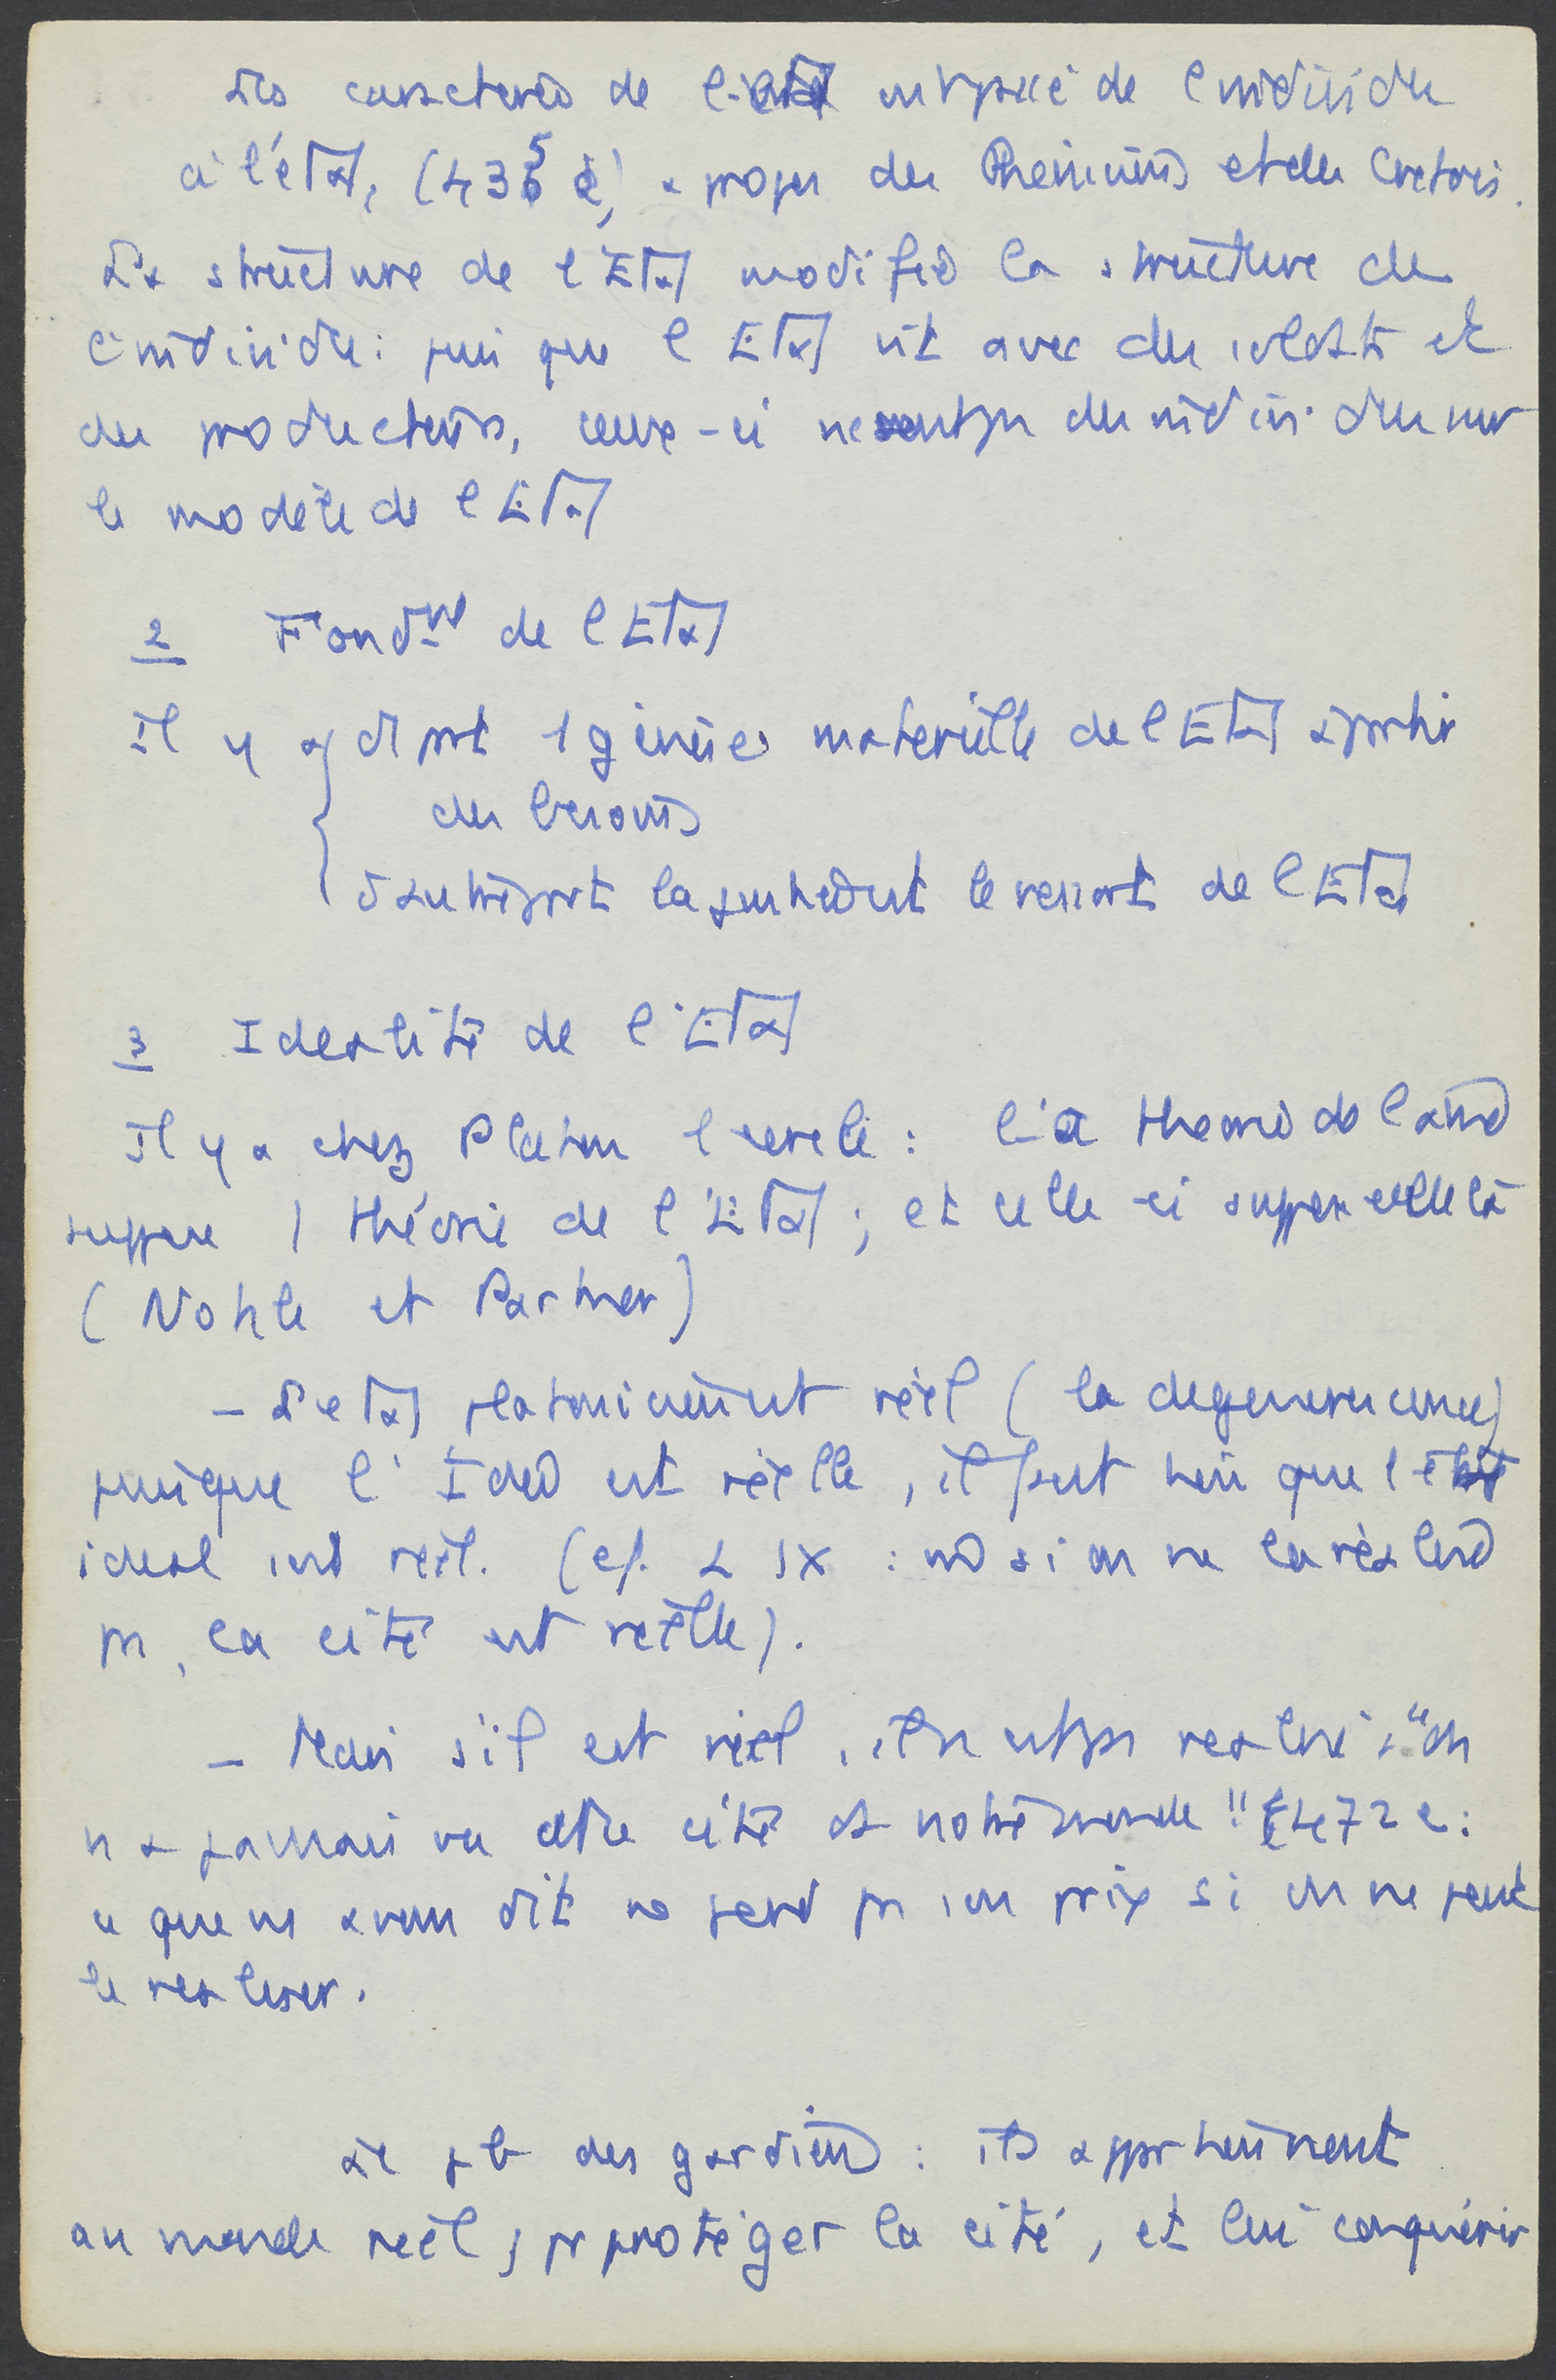 Les caractères de l'Etat ont passé de l'individu
à l'état, (435 e) à propos des Phéniciens et des Crétois.
La structure de l'Etat modifie la structure de
l'individu : puisque l'Etat vit avec des soldats et
des producteurs, ceux-ci ne sont pas des individus sur
le modèle de l'Etat
2 Fondmt de l'Etat
Il y a d'1 part 1 genèse matérielle de l'Etat à partir
des besoins
d'autre part la justice est le ressort de l'Etat
3 Idéalité de l'Etat
Il y a chez Platon 1 cercle : la théorie de l'âme
suppose 1 théorie de l'Etat ; et celle-ci suppose celle là
(Nohle et Barker)
- L'etat platonicien est réel (la dégénérescence)
puisque l'Idée est réelle, il faut bien que l'état
idéal soit réel. (cf. L IX : m si on ne la réalise
pas, la cité est réelle).
- Mais s'il est réel, il n'est pas réalisé : "on
n'a jamais vu cette cité ds notre monde" 472 e :
ce que ns avons dit ne perd pas son prix si on ne peut
le réaliser.
Le pb des gardiens : ils appartiennent
au monde réel ; pr protéger la cité, et lui conquérir